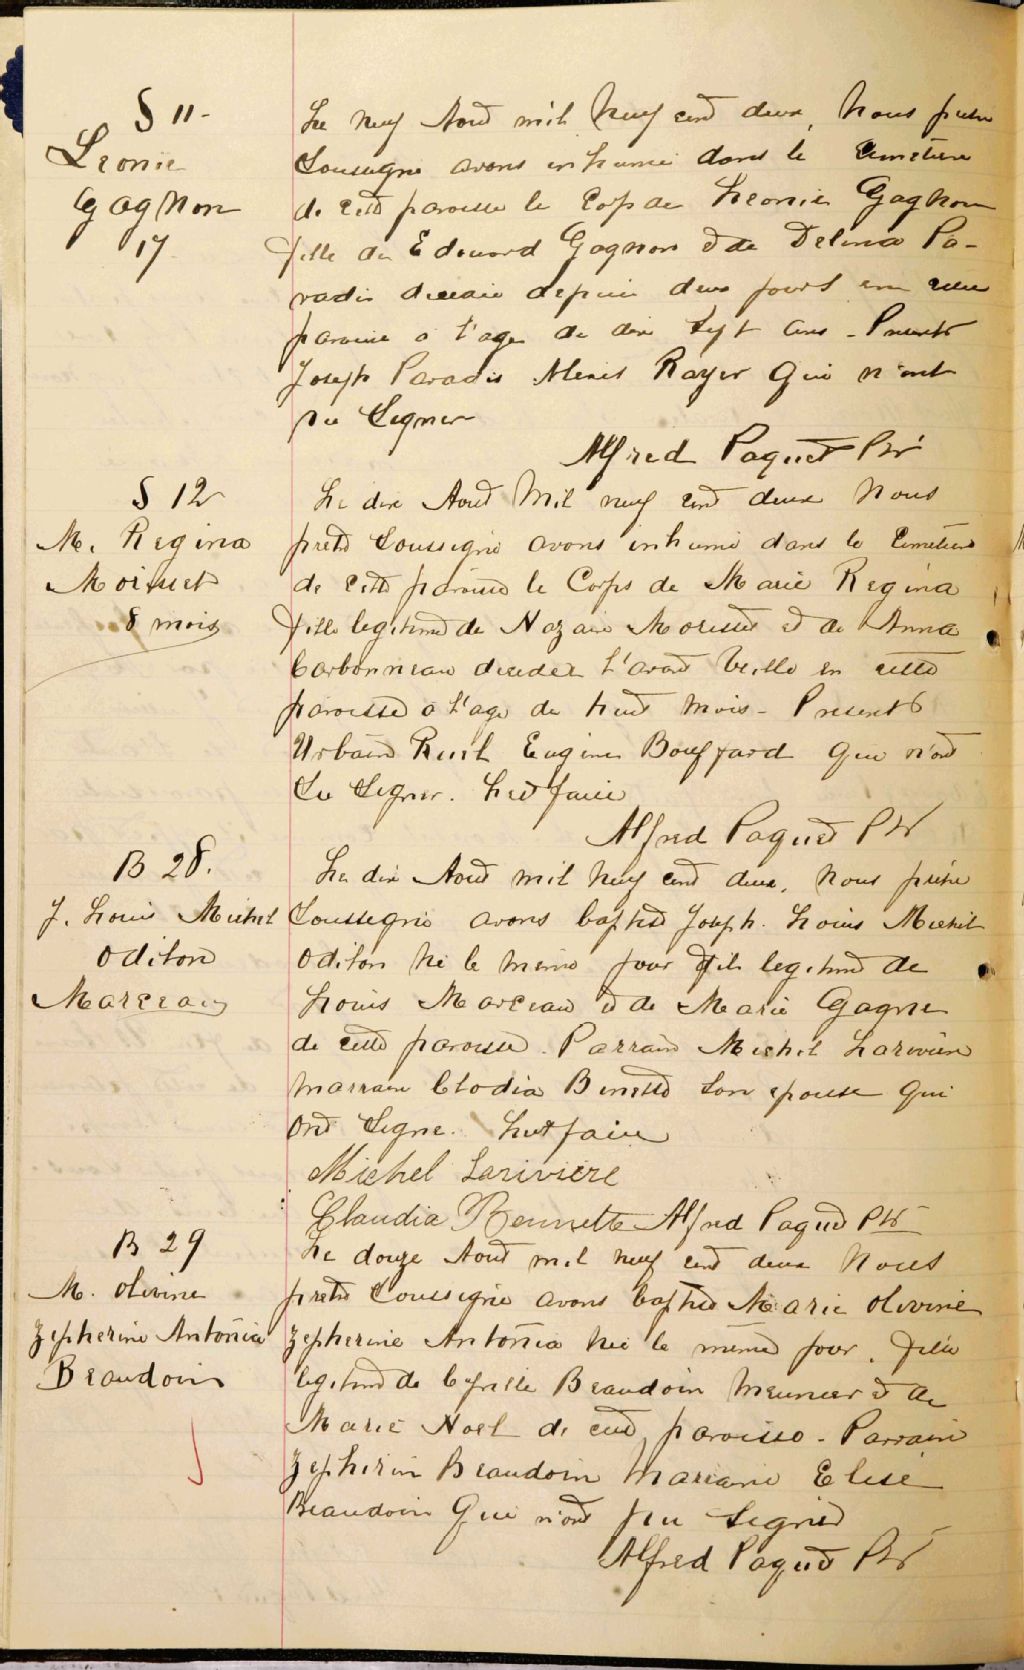 S 11-
Leonie
Gagnon
17
Le neuf Aout mil neuf cent deux, nous pretre
Soussigne avons inhumé dans le Cimetiere
de cette paroisse le corps de Leonie Gagnon
fille de Edouard Gagnon et de Delina Pa-
radis decedée depuis deux jours en cette
paroisse a l'age de dix sept ans - Presents
Joseph Paradis Alexis Rayer qui n'ont
su Signer
Alfred Paquet Ptr
S 12
M. Regina
Morisset
8 mois
Le dix Aout Mil neuf cent deux nous
pretre Soussigné avons inhumé dans le Cimetiere
de cette paroisse le Corps de Marie Regina
fille legitime de Nazaire Morisset et de Anna
Carbonneau decedée l'avant Veille en cette
paroisse a l'age de huit mois - Presents
Urbain Eugene Bouffard qui n'ont
Su Signer. Lect faite
Alfred Paquet Ptr
B 28.
J. Louis Michel
Odilon
Marceau
Le dix Aout mil neuf cent deux, nous pretre
Soussigné avons baptisé Joseph. Louis Michel
Odilon né le meme jour fils legitime de
Louis Marceau et de Marie Gagne
de cette paroisse. Parrain Michel Lariviere
marraine Clodia Binette son epouse qui
ont Signe. Lect faite
Michel Lariviere
Claudia Bennette Alfred Paquet Ptr
B 29
M. Olivine
Zepherine Antonia
Beaudoin
Le douze Aout mil neuf cent deux Nous
pretre Soussigné avons baptisé Marie Olivine
Zepherine Antonia née le meme jour. fille
legitime de Cyrille Beaudoin meunier et de
Marie Noel de cette paroisse - Parrain
Zepherin Beaudoin Marraine Elise
Beaudoin Qui n'ont pu Signer
Alfred Paquet Ptr